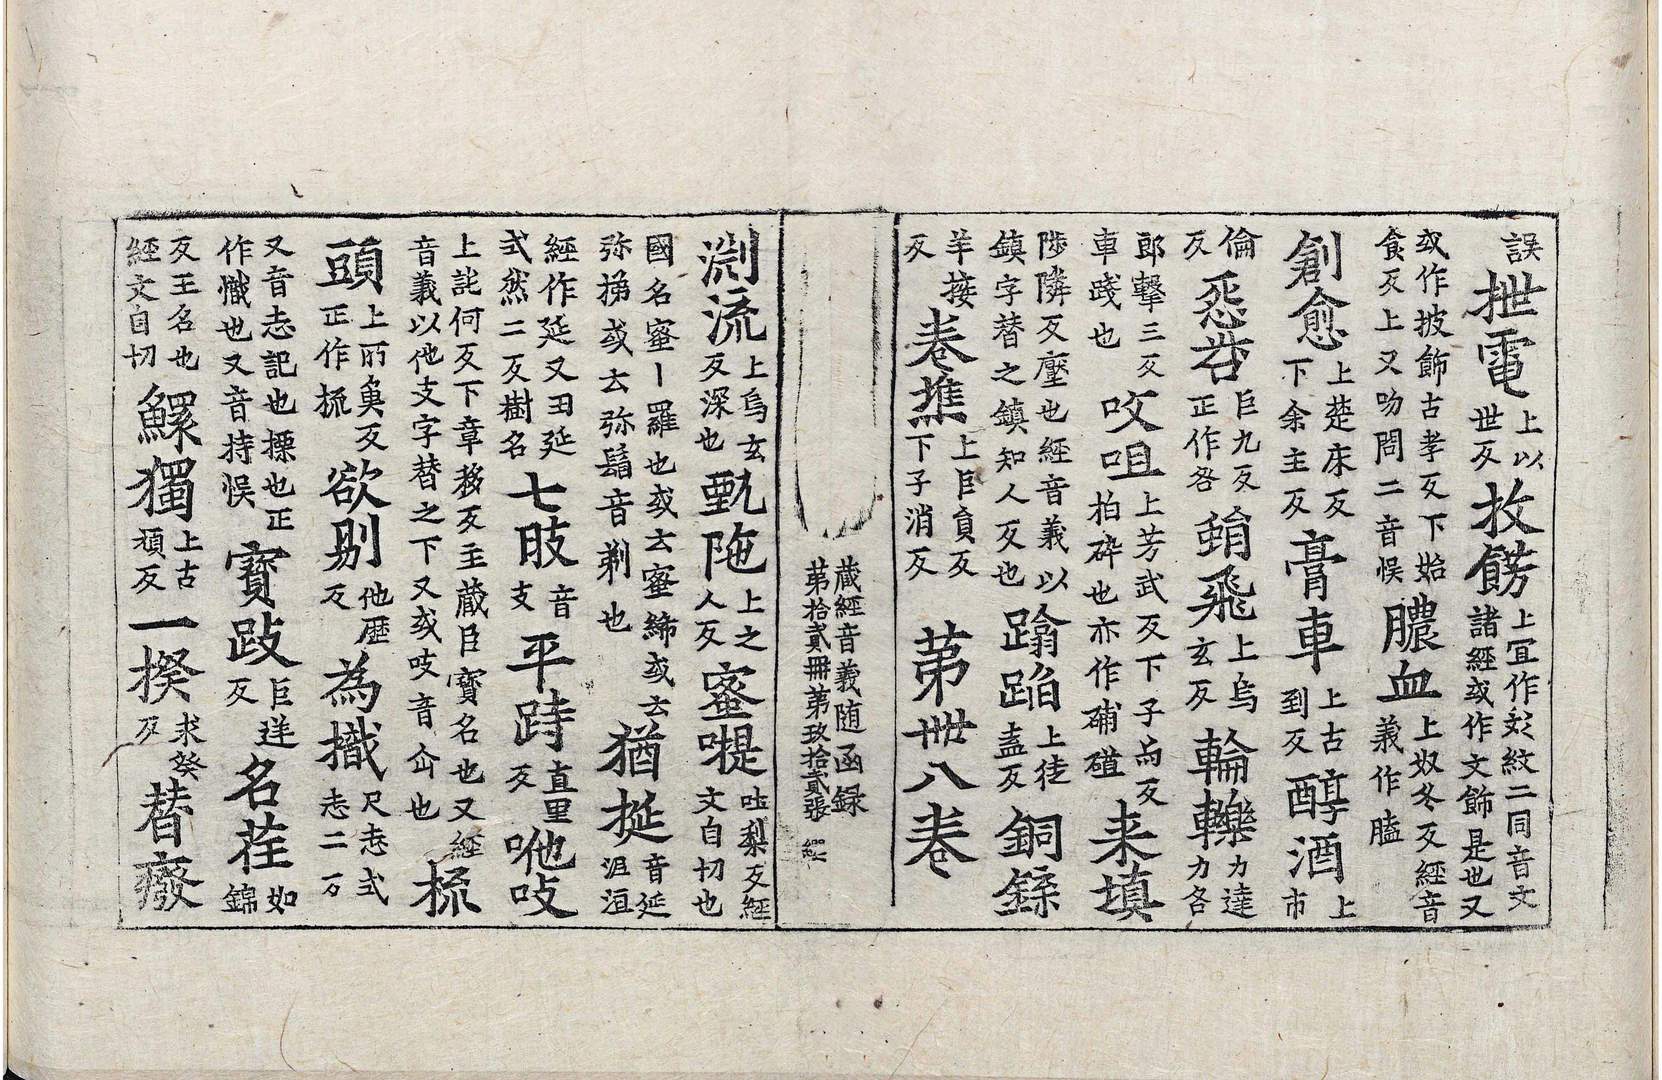 誤抴電上以世反抆餝上宜作紋二同音文諸經或作文飾是也又
或作披飾古孝反下始食反上又吻問二音悞膿血上奴冬反經音義作
創愈上楚床反下余主反膏車上古到反醇酒上市
倫反惡咎巨九反正作咎蜎飛上烏玄反輪轢力達力各
郎擊三反車踐也㕮咀上芳武反下子与反拍碎也亦作来填
陟隣反壓也經音義以鎮字替之鎮知人反也蹹蹈上徒盍反銅
羊接反卷撨上巨員反下子消反苐卌八卷
蔵經音義随函録
苐拾貳冊苐玖拾貳張
渕流上烏玄反深也甄陁上之人反蜜㗣吐梨反經文自切也
國名蜜丨羅也或云蜜締或云弥梯或云弥鬄音剃也猶挻音延沮洹
經作延又丑延式然二反樹名七胑音支平跱直里反咃吱
上託何反下章移反主蔵臣寳名也又經音義以他支字替之下又或吱音也梳
頭上所魚反正作梳欲剔他歷反為撠尺志式志二反
又音志記也摽也正作幟也又音持悞寳跂巨逆反名荏如錦
反王名也經文自切鰥獨上古頑反一揆求癸反替癈